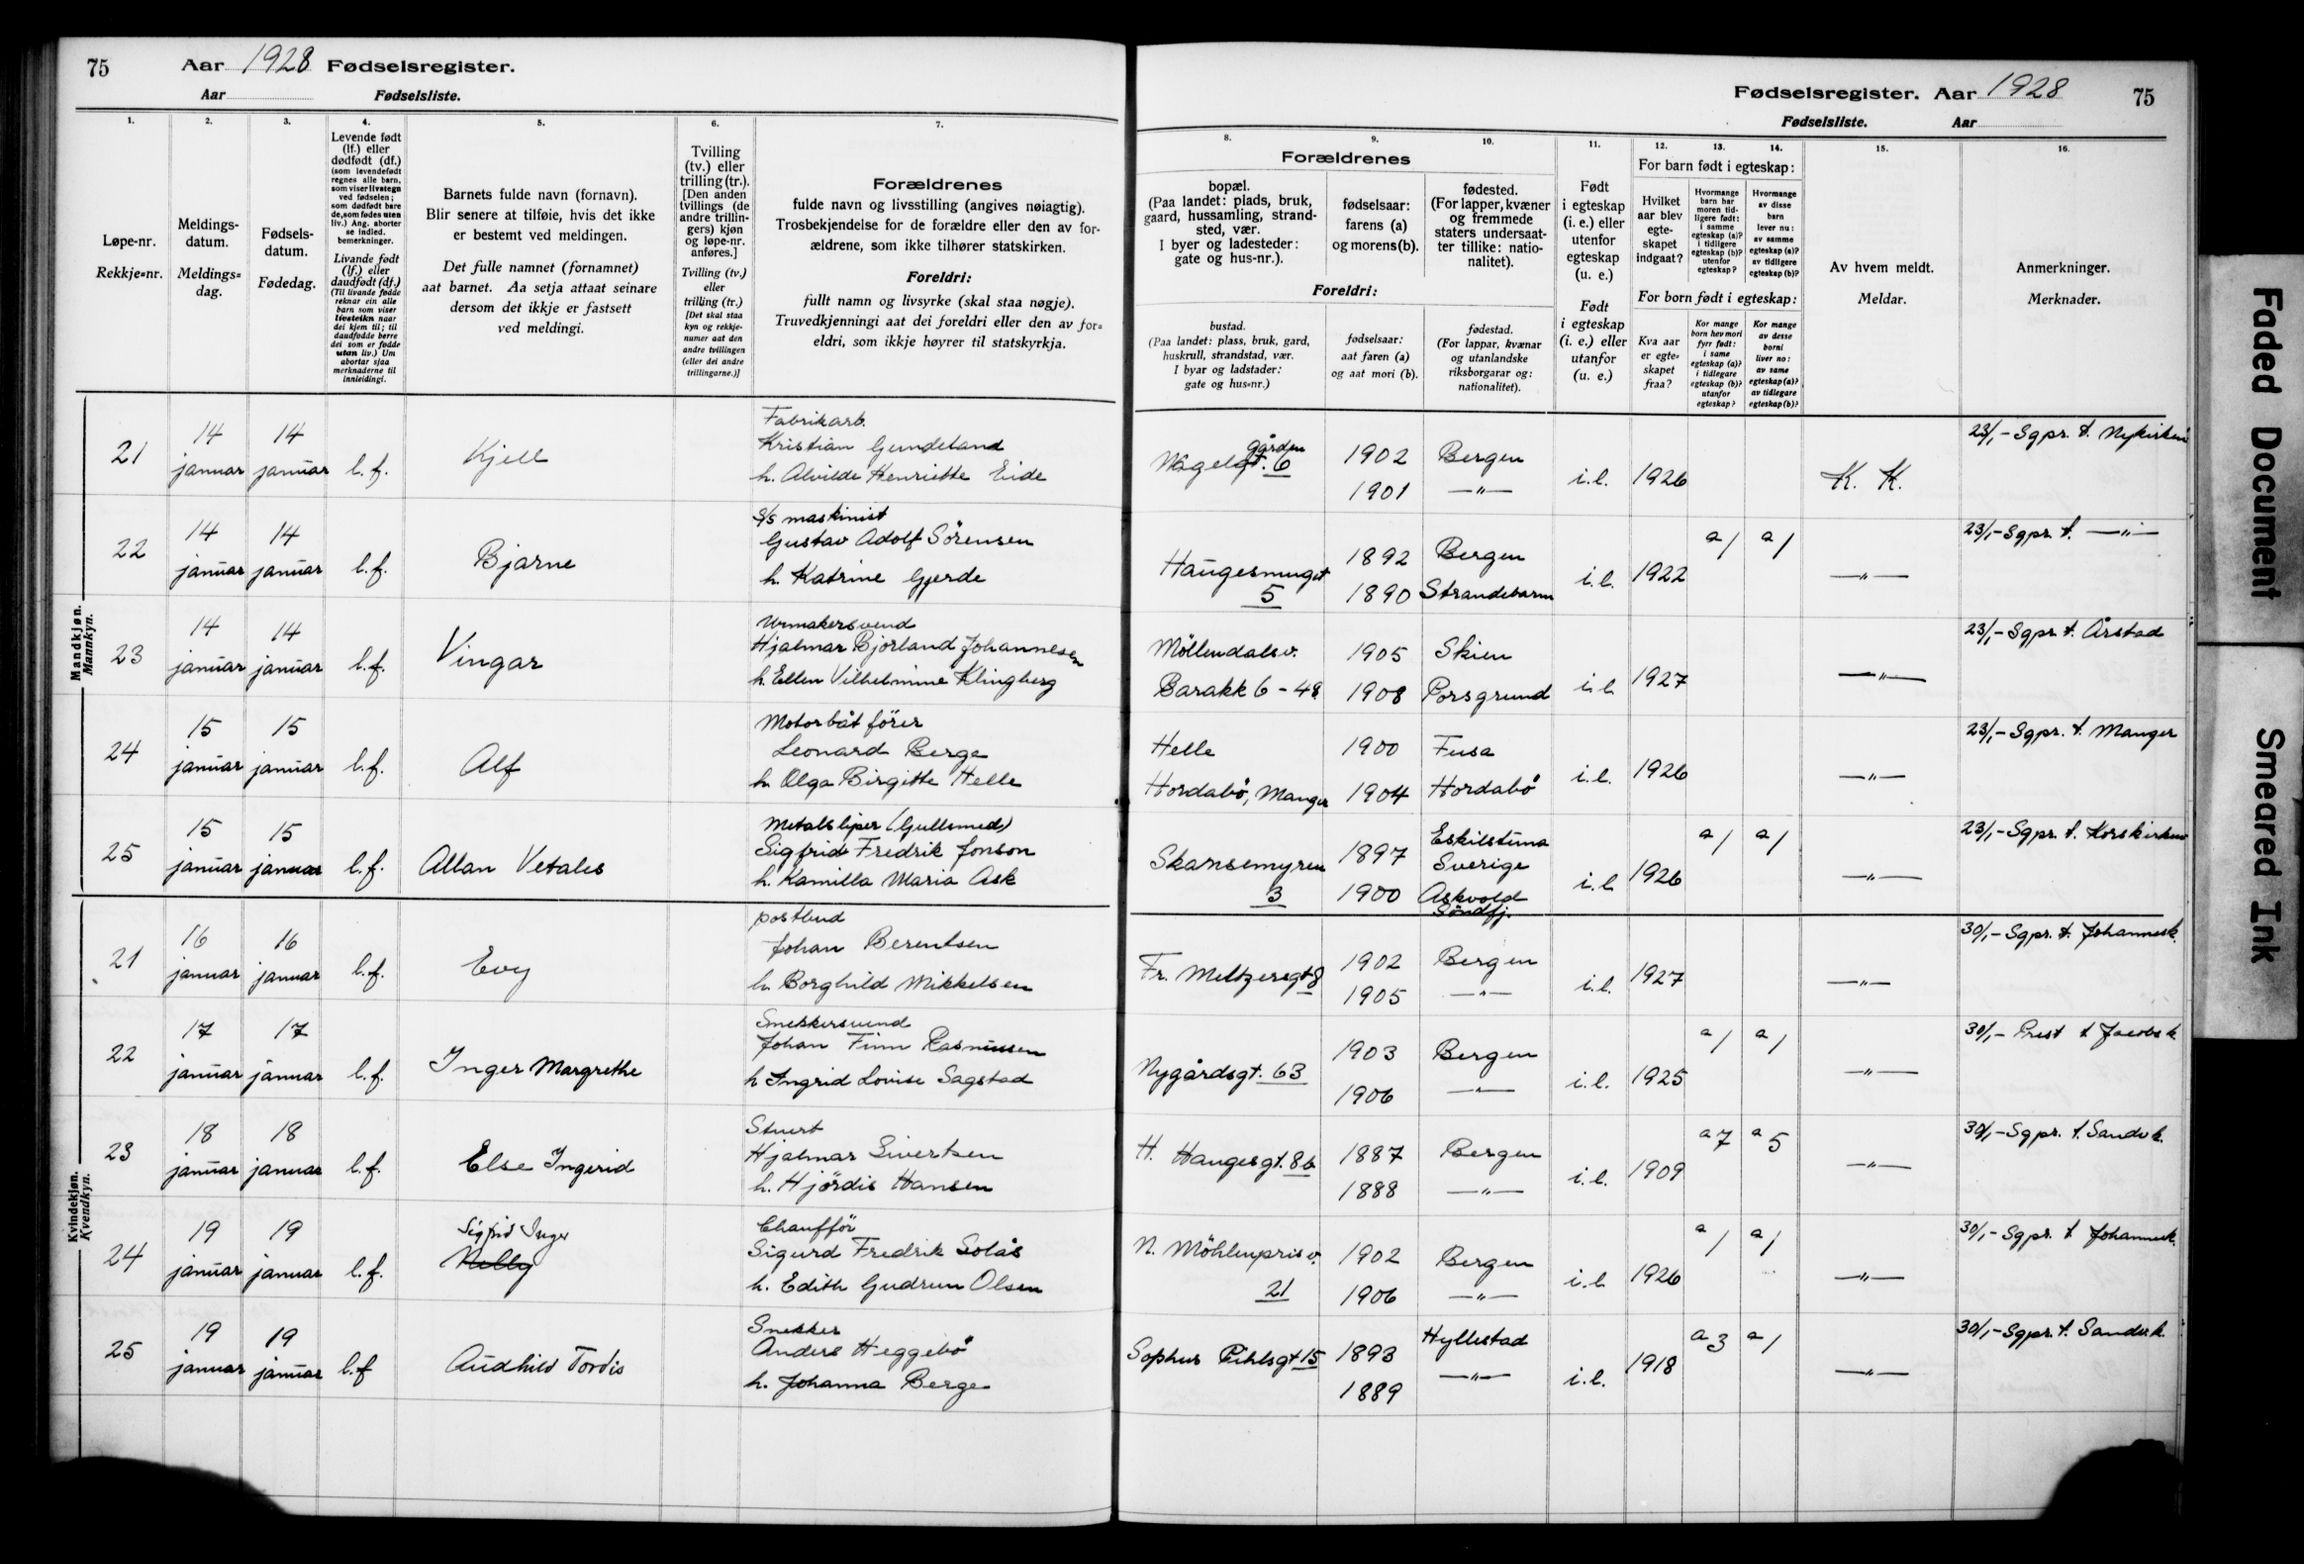 75 Aar 1928 Fødselsregister.
Aar Fødselsliste.
1. 2. 3. 4. 5. 6. 7.
Løpe-nr.
Rekkje=nr.
Meldings-
datum.
Meldings=
dag.
Fødsels-
datum.
Fødedag.
Levende født
(lf.) eller
dødfødt (df.)
(som levendefødt
regnes alle barn,
som viser livstegn
ved fødselen;
som dødfødt bare
de, som fødes uten
liv.) Ang. aborter
se indled.
bemerkninger.
Livande født
(lf.) eller
daudfødt (df.)
(Til livande fødde
reknar ein alle
born som viser
livsteikn naar
dei kjem til; til
daudfødde berre
dei som er fødde
utan liv.) Um
abortar sjaa
merknaderne til
innleidingi.
Barnets fulde navn (fornavn).
Blir senere at tilføie, hvis det ikke
er bestemt ved meldingen.
Det fulle namnet (fornamnet)
aat barnet. Aa setja attaat seinare
dersom det ikkje er fastsett
ved meldingi.
Tvilling
(tv.) eller
trilling (tr.).
[Den anden
tvillings (de
andre trillin-
gers) kjøn
og løpe-nr.
anføres.]
Tvilling (tv.)
eller
trilling (tr.)
[Det skal staa
kyn og rekkje-
numer aat den
andre tvillingen
(eller dei andre
trillingarne.)]
Forældrenes
fulde navn og livsstilling (angives nøiagtig).
Trosbekjendelse for de forældre eller den av for-
ældrene, som ikke tilhører statskirken.
Foreldri:
fullt namn og livsyrke (skal staa nøgje).
Truvedkjenningi aat dei foreldri eller den av for=
eldri, som ikkje høyrer til statskyrkja.
Mandkjøn.
Mannkyn.
21 14 januar 14 januar l.f. Kjell
Fabrikarb.
Kristian Gundeland
h. Alvilde Henriette Eide
22 14 januar 14 januar l.f. Bjarne
S/S maskinist
Gustav Adolf Sörensen
h. Katrine Gjerde
23 14 januar 14 januar l.f. Vingar
Urmakersvend
Hjalmar Bjorland Johannesen
h. Ellen Vilhelmine Klingberg
24 15 januar 15 januar l.f. Alf
Motorbåt förer
Leonard Berge
h. Olga Birgitte Helle
25 15 januar 15 januar l.f. Allan Vetales
Metalsliper (Gullsmed)
Sigfrid Fredrik Jonson
h. Kamilla Maria Ask
Kvindekjøn.
Kvendkyn.
21 16 januar 16 januar l.f. Evy
postbud
Johan Berentsen
h. Borghild Mikkelsen
22 17 januar 17 januar l.f. Inger Margrethe
Snekkersvend
Johan Finn Rasmussen
h Ingrid Lovise Sagstad
23 18 januar 18 januar l.f. Else Ingerid
Stuert
Hjalmar Sivertsen
h. Hjördis Hansen
24 19 januar 19 januar l.f. Sigfrid Inger
Nelly
Chaufför
Sigurd Fredrik Solås
h. Edith Gudrun Olsen
25 19 januar 19 januar l.f Audhild Tordis
Snekker
Anders Heggebö
h. Johanna Berge
Fødselsregister. Aar 1928 75
Fødselsliste. Aar
8. 9. 10. 11. 12. 13. 14. 15. 16.
Forældrenes
bopæl.
(Paa landet: plads, bruk,
gaard, hussamling, strand-
sted, vær.
I byer og ladesteder:
gate og hus-nr.).
fødselsaar:
farens (a)
og morens (b).
fødested.
(For lapper, kvæner
og fremmede
staters undersaat-
ter tillike: natio-
nalitet).
Foreldri:
bustad.
(Paa landet: plass, bruk, gard,
huskrull, strandstad, vær.
I byar og ladstader:
gate og hus=nr.)
fødselsaar:
aat faren (a)
og aat mori (b).
fødestad.
(For lappar, kvænar
og utanlandske
riksborgarar og:
nationalitet).
Født
i egteskap
(i. e.) eller
utenfor
egteskap
(u. e.)
Født
i egteskap
(i. e.) eller
utanfor
egteskap
(u. e.)
For barn født i egteskap:
Hvilket
aar blev
egte-
skapet
indgaat?
Hvormange
barn har
moren tid-
ligere født:
i samme
egteskap (a)?
i tidligere
egteskap (b)?
utenfor
egteskap?
Hvormange
av disse
barn
lever nu:
av samme
egteskap (a)?
av tidligere
egteskap (b)?
For born født i egteskap:
Kva aar
er egte-
skapet
fraa?
Kor mange
born hev mori
fyrr født:
i same
egteskap (a)?
i tidlegare
egteskap (b)?
utanfor
egteskap?
Kor mange
av desse
borni
liver no:
av same
egteskap (a)?
av tidlegare
egteskap (b)?
Av hvem meldt.
Meldar.
Anmerkninger.
Merknader.
gården 6 1902 1901 Bergen —"— i.e. 1926 K. K. 23/1- Sgpr. t. Nykirken
Haugesmuget 5 1892 1890 Bergen Strandebarm i.e. 1922 a 1 a 1 —"— 23/1- Sgpr t. —"—
Möllendalsv. Barakk 6 - 48 1905 1908 Skien Porsgrund i.e. 1927 —"— 23/1- Sgpr t. Årstad
Helle Hordabö, Manger 1900 1904 Fusa Hordabö i.e. 1926 —"— 23/1- Sgpr. t. Manger
Skansemyren 3 1897 1900 Eskilstuna Sverige Askvold Söndfj. i.e. 1926 a 1 a 1 —"— 23/1- Sgpr. t. Korskirken
Fr. Meltzersgt 8 1902 1905 Bergen —"— i.e. 1927 —"— 30/1- Sgpr. t. Johannesk.
Nygårdsgt. 63 1903 1906 Bergen —"— i.e. 1925 a 1 a 1 —"— 30/1- Prest t Jacobs k.
H. Haugesgt. 8b 1887 1888 Bergen —"— i.e. 1909 a 7 a 5 —"— 30/1- Sgpr. t. Sandv k.
N. Möhlenprisv. 21 1902 1906 Bergen —"— i.e. 1926 a 1 a 1 —"— 30/1- Sgpr. t Johannesk.
Sophus Pihlsgt 15 1893 1889 Hyllestad —"— i.e. 1918 a 3 a 1 —"— 30/1- Sgpr. t. Sandv.k.
Faded Document
Smeared Ink